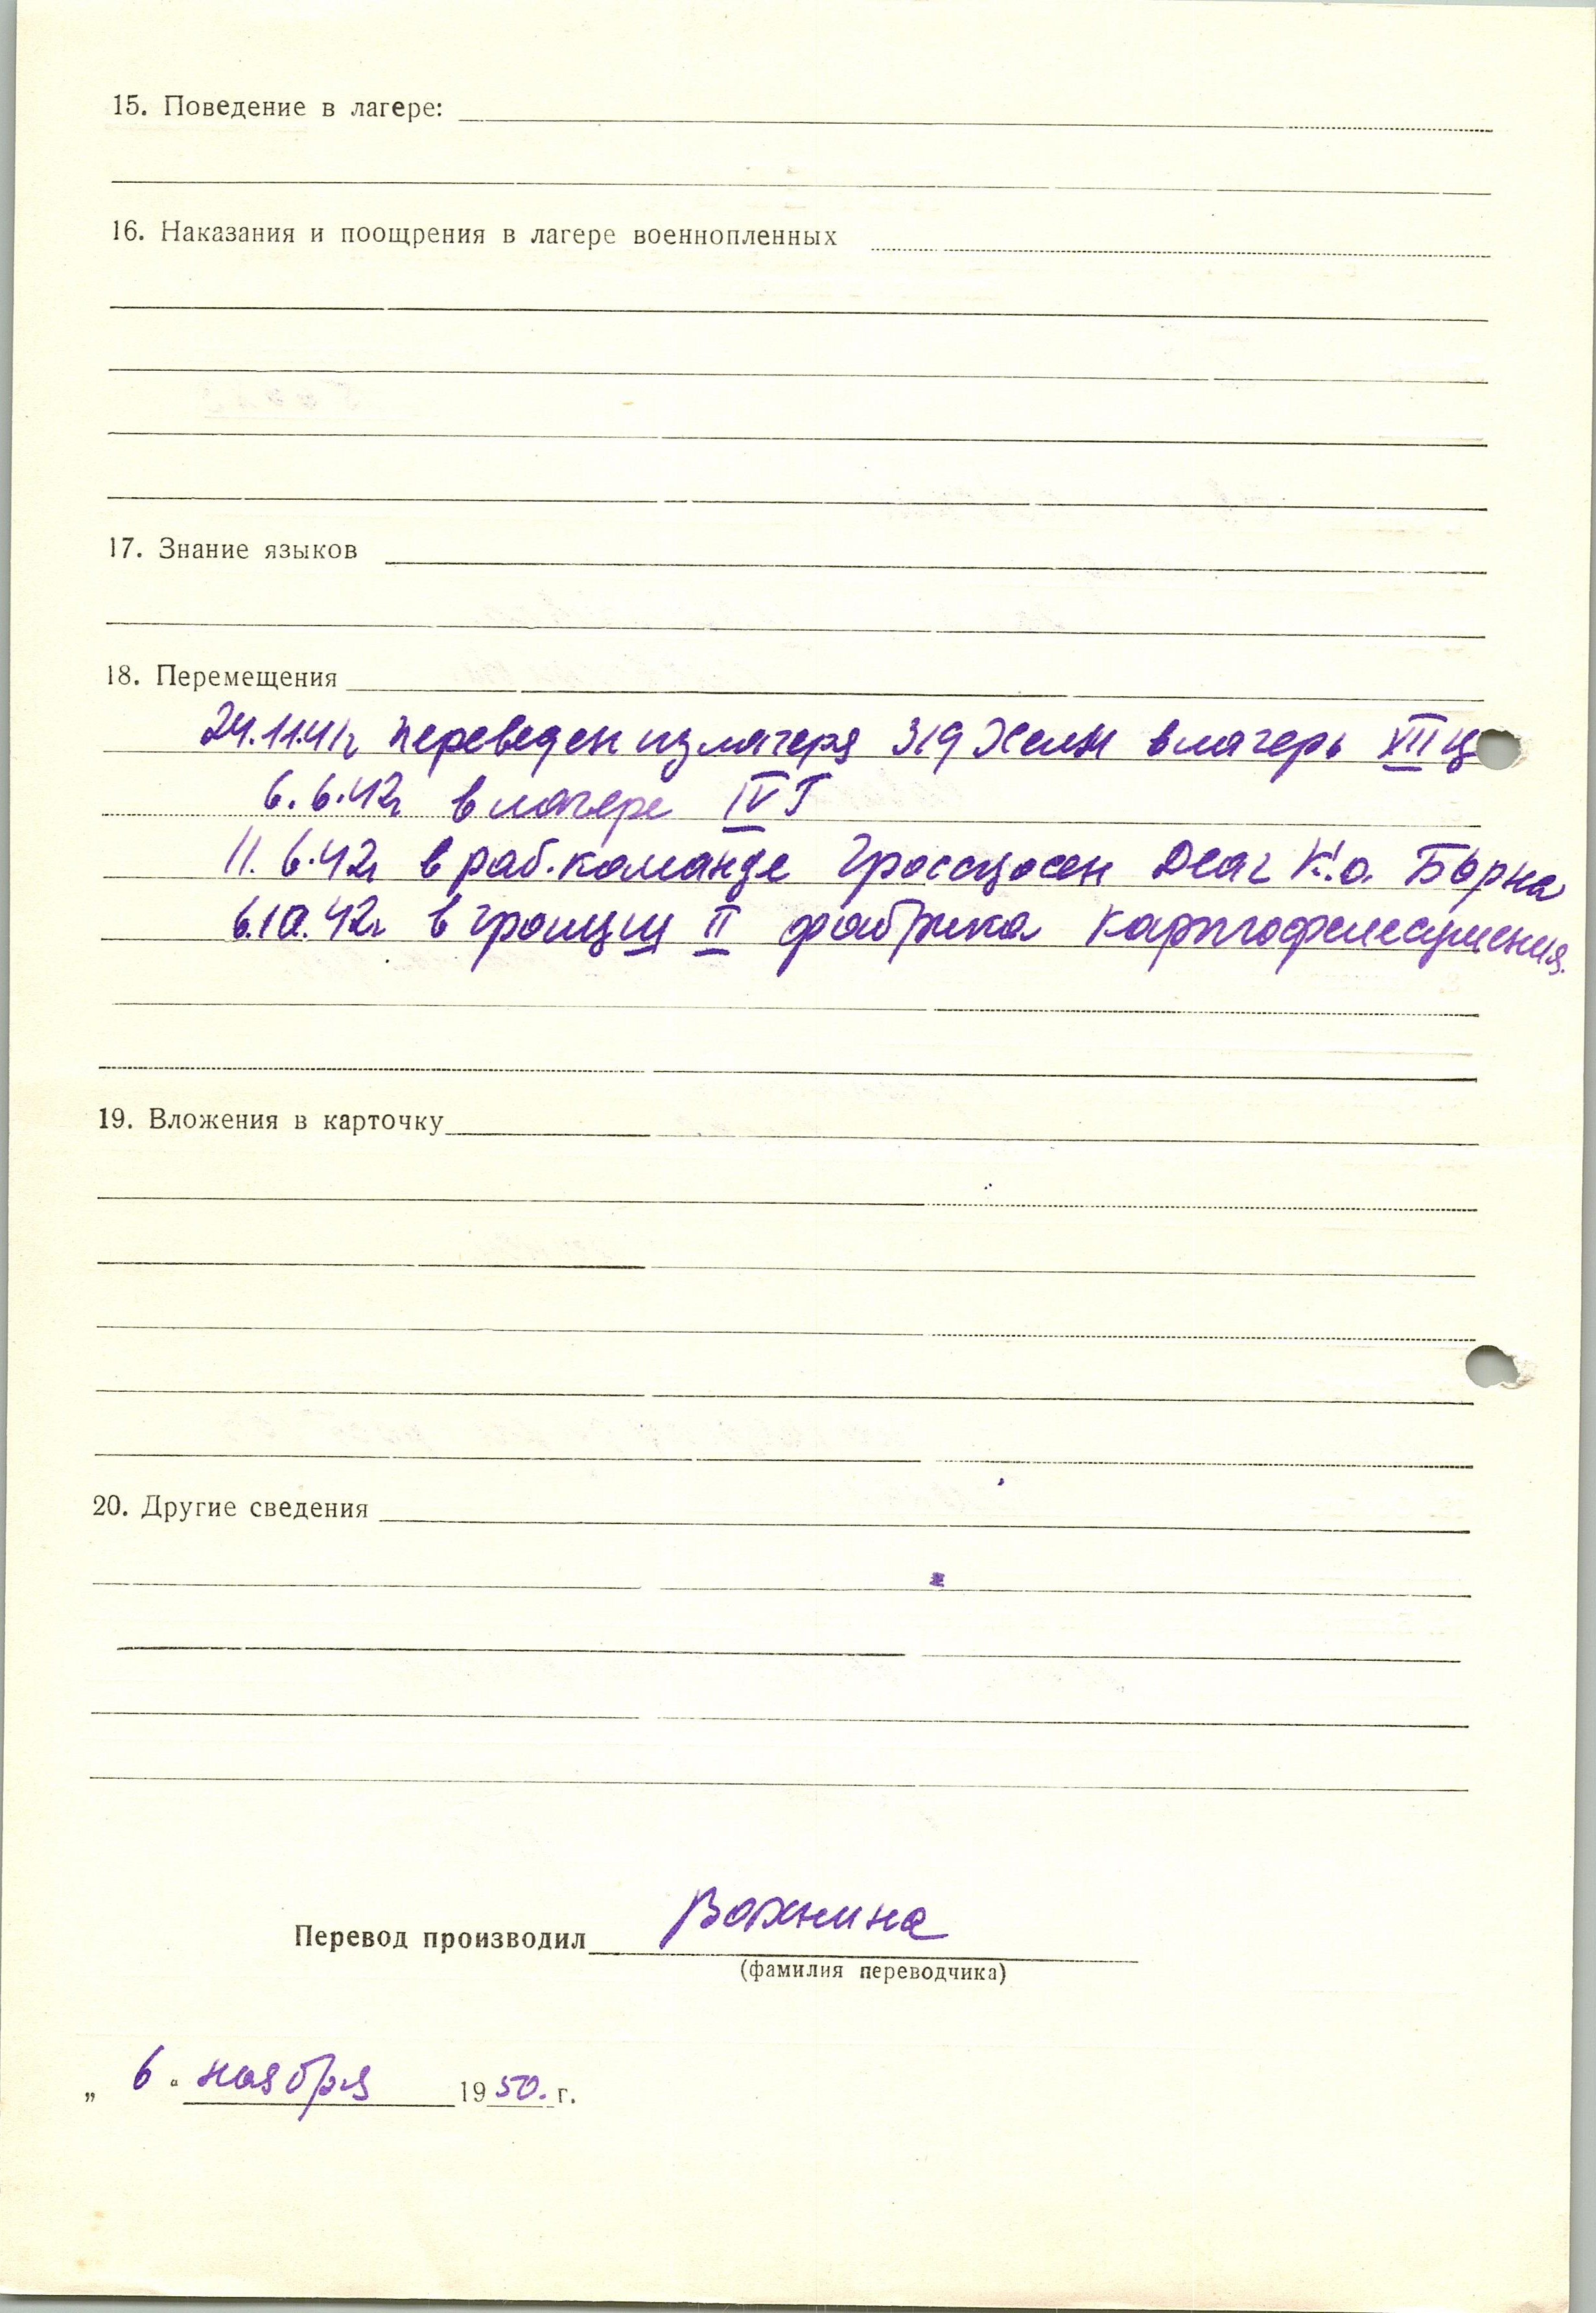 15. Поведение в лагере:
16. Наказания и поощрения в лагере военнопленных
17. Знание языков
18. Перемещения
24.11.41г переведен из лагеря 319 Хелм в лагерь XII Ц
6.6.42г в лагере IV Г
11.6.42г в раб. команде Гроссцосен К.о. Борна
6.10.42г в II фабрика картофелесушения.
19. Вложения в карточку
20. Другие сведения
Перевод производил Вожнина
(фамилия переводчика)
„ 6 “ ноября 1950. г.